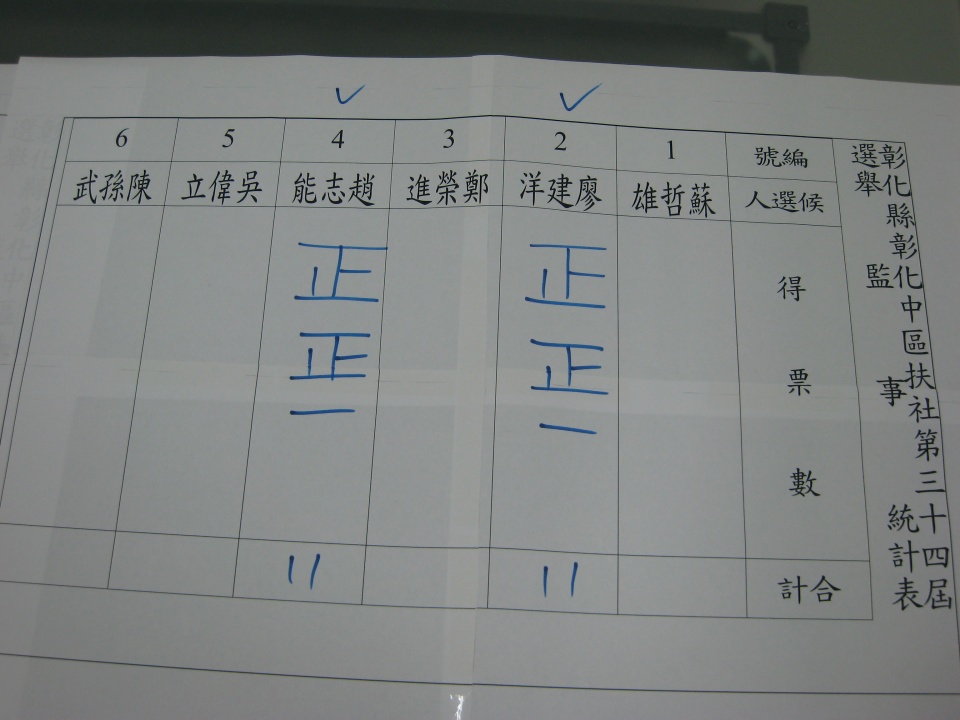 彰化縣彰化中區扶社第三十四屆
選舉監事統計表
編號 1 2 3 4 5 6
候選人 蘇哲雄 廖建洋 鄭榮進 趙志能 吳偉立 陳孫武
得票數 正正一 正正一
合計 11 11